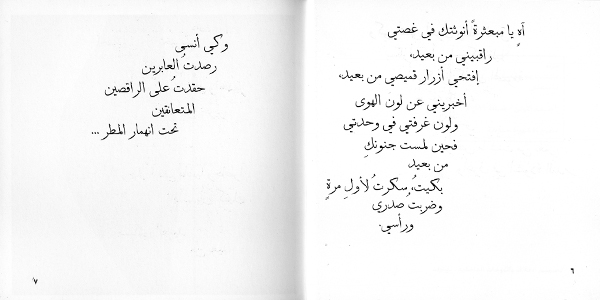 آهِ يا مبعثرةً أنوثتك في غصتي
راقبيني من بعيد،
إفتحي أزرار قميصي من بعيد،
أخبريني عن لون الهوى
ولون غرفتي في وحدتي
فحين لمست جنونكِ
من بعيد
بكيتُ، سكرتُ لأولِ مرةٍ
وضربتُ صدري
ورأسي.
٦
وكي أنسى
رصدتُ العابرين
حقدتُ على الراقصين
المتعانقين
تحت انهمار المطر ...
٧